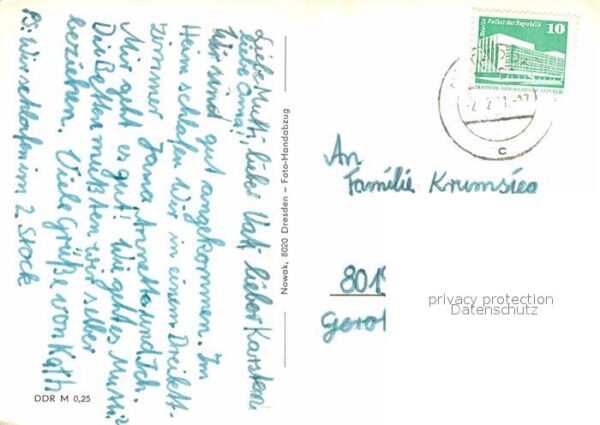 Liebe Mutti, lieber Vati, lieber Karsten!
liebe Oma!
Wir sind gut angekommen. Im
Heim schlafen Wir in einem Dreibett-
zimmer Jana Annette und Ich.
Mir geht es gut! Wie geht es Mutti?
Die Betten mußten wir selber
beziehen. Viele Grüße von Kath
PS: Wir schlafen im 2. Stock
DDR M 0,25
Nowak, 8020 Dresden – Foto-Handabzug
Berlin Palast der Republik
10
DEUTSCHE DEMOKRATISCHE REPUBLIK
c
An
Familie Krumsieg
801
Gerot
privacy protection
Datenschutz